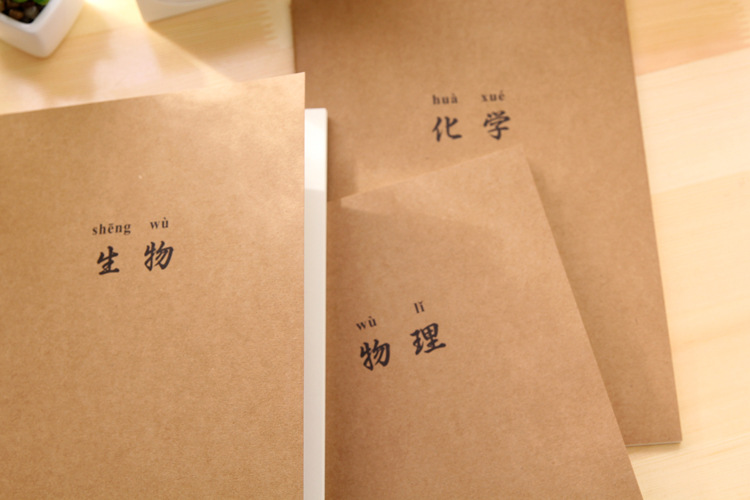 huà xué
化学
shēng wù
生物
wù lǐ
物理